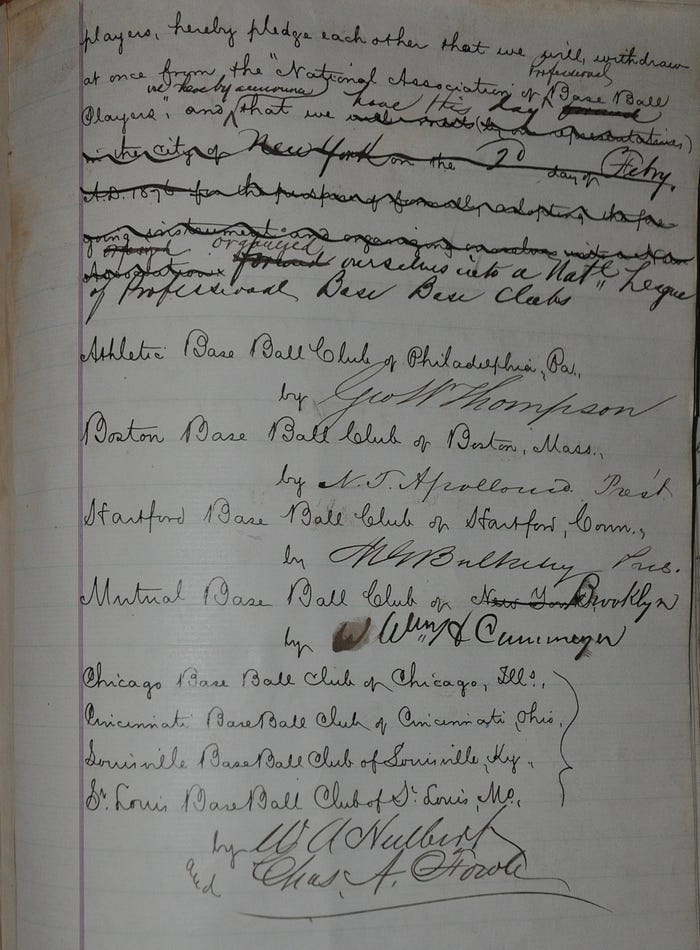 players, hereby pledge each other that we will, withdraw
at once from the "National Association of Professional Base Ball
we hereby announce have this day formed
Players", and that we will meet (by our representatives)
in the city of New York on the 2d day of Feby.
A.D. 1876 for the purpose of formally adopting the fore
going instrument and organizing ourselves
organized
Association formed ourselves into a Nat'l League
of Professional Base Base Clubs
Athletic Base Ball Club of Philadelphia, Pa.,
by Geo W Thompson
Boston Base Ball Club of Boston, Mass.,
by N. T. Apollonio Pres't
Hartford Base Ball Club of Hartford, Conn.,
by M G Bulkeley Pres.
Mutual Base Ball Club of New York Brooklyn
by W Wm H Cammeyer
Chicago Base Ball Club of Chicago, Ills.,
Cincinnati Base Ball Club of Cincinnati, Ohio,
Louisville Base Ball Club of Louisville, Ky.,
St. Louis Base Ball Club of St. Louis, Mo.,
by W A Hulbert
and Chas. A. Fowle